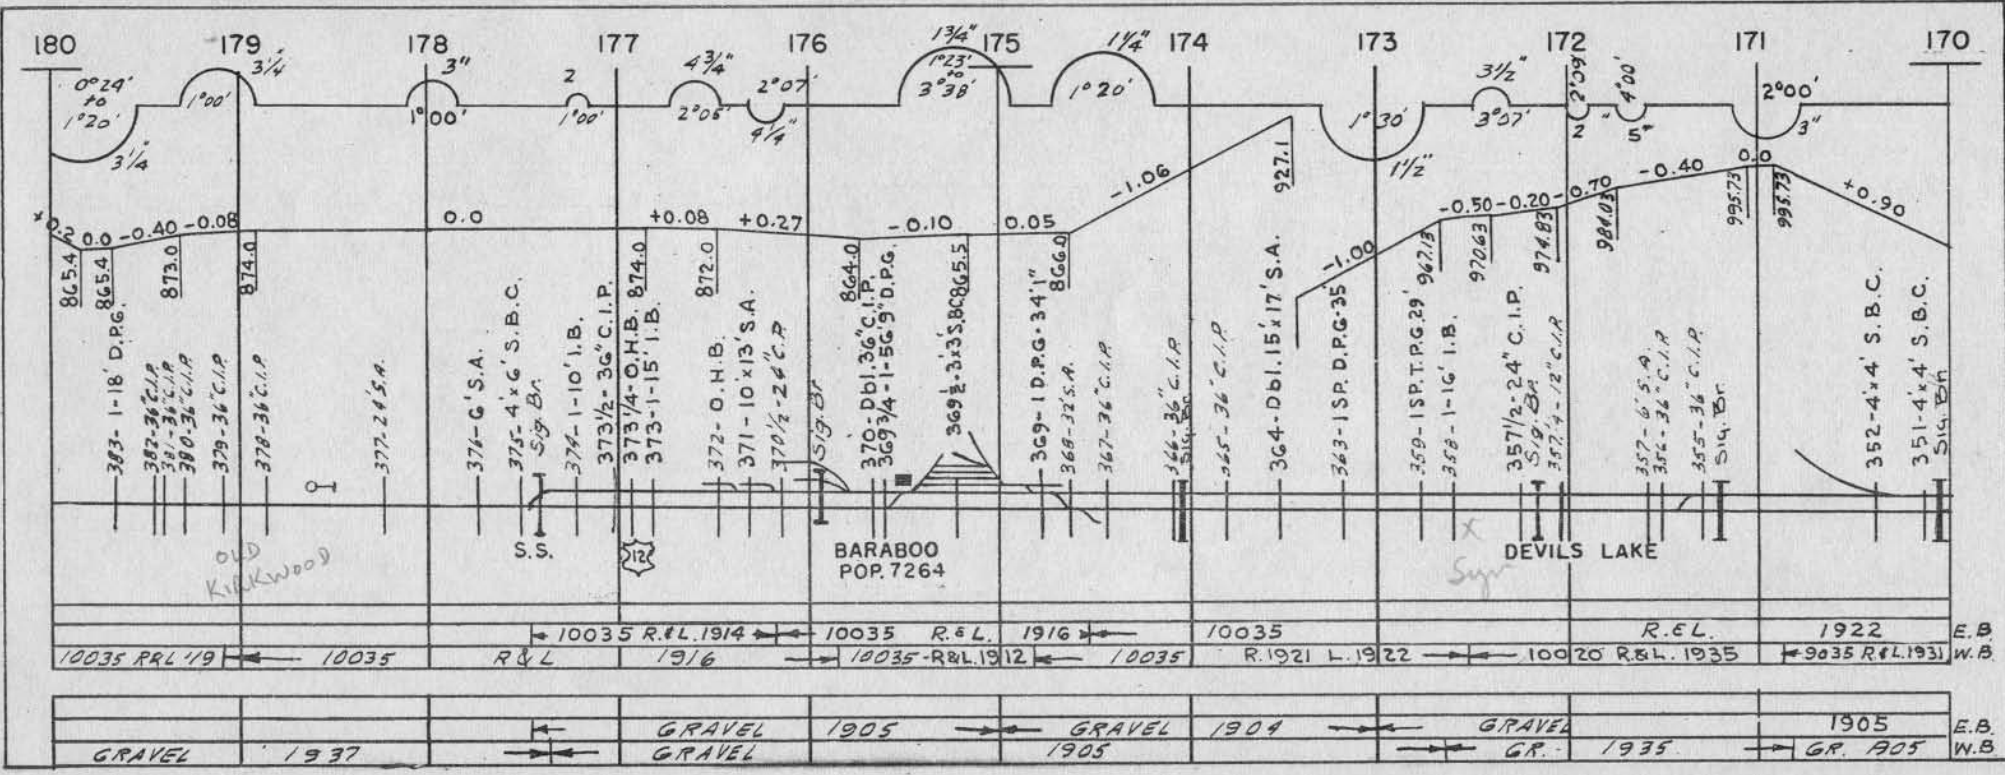 180 179 178 177 176 175 174 173 172 171 170
0°24' to 1°20' 3¼"
1°00' 3¼
3" 1°00'
2 1°00'
4¾" 2°05'
2°07' 4¼"
1¾" 1°23' to 3°38'
1¼" 1°20'
1°30' 1½"
3½" 3°07'
2°09' 2"
4°00' 5"
2°00' 3"
0.0 -0.40 -0.08 0.0 +0.08 +0.27 -0.10 0.05 -1.06 -1.00 -0.50 -0.20 -0.70 -0.40 0.0 +0.90
865.4 865.4 873.0 874.0 874.0 872.0 864.0 865.5 866.0 927.1 967.13 970.63 974.83 984.03 995.73 995.73
383-1-18' D.P.G.
382-36"C.I.P.
381-36"C.I.P.
380-36"C.I.P.
379-36"C.I.P.
378-36"C.I.P.
377-24'S.A.
376-6'S.A.
375-4'x6' S.B.C.
Sig. Br.
374-1-10' I.B.
373½-36"C.I.P.
373¼-O.H.B.
373-1-15' I.B.
372-O.H.B.
371-10'x13'S.A.
370½-24"C.I.P.
Sig. Br
370-Dbl.36"C.I.P.
369¾-1-56'9"D.P.G.
369½-3'x3'S.B.C.
369-1 D.P.G-34'1"
368-32'S.A.
367-36"C.I.P.
366-36"C.I.P.
Sig. Br.
365-36"C.I.P.
364-Dbl.15'x17'S.A.
363-1SP. D.P.G-35'
359-1SP.T.P.G.29'
358-1-16' I.B.
357½-24" C.I.P.
Sig. Br.
357¼-12"C.I.P.
357-6'S.A.
356-36"C.I.P.
355-36"C.I.P.
Sig. Br.
352-4'x4' S.B.C.
351-4'x4' S.B.C.
Sig. Br.
OLD KIRKWOOD
S.S.
12
BARABOO
POP. 7264
X
DEVILS LAKE
10035 R.&L. 1914 10035 R.&L. 1916 10035 R.&L. 1922 E.B.
10035 R&L '19 10035 R&L 1916 10035-R&L.1912 10035 R.1921 L.1922 10020 R.&L. 1935 9035 R.&L.1931 W.B.
GRAVEL 1905 GRAVEL 1904 GRAVEL 1905 E.B.
GRAVEL 1937 GRAVEL 1905 GR. 1935 GR. 1905 W.B.